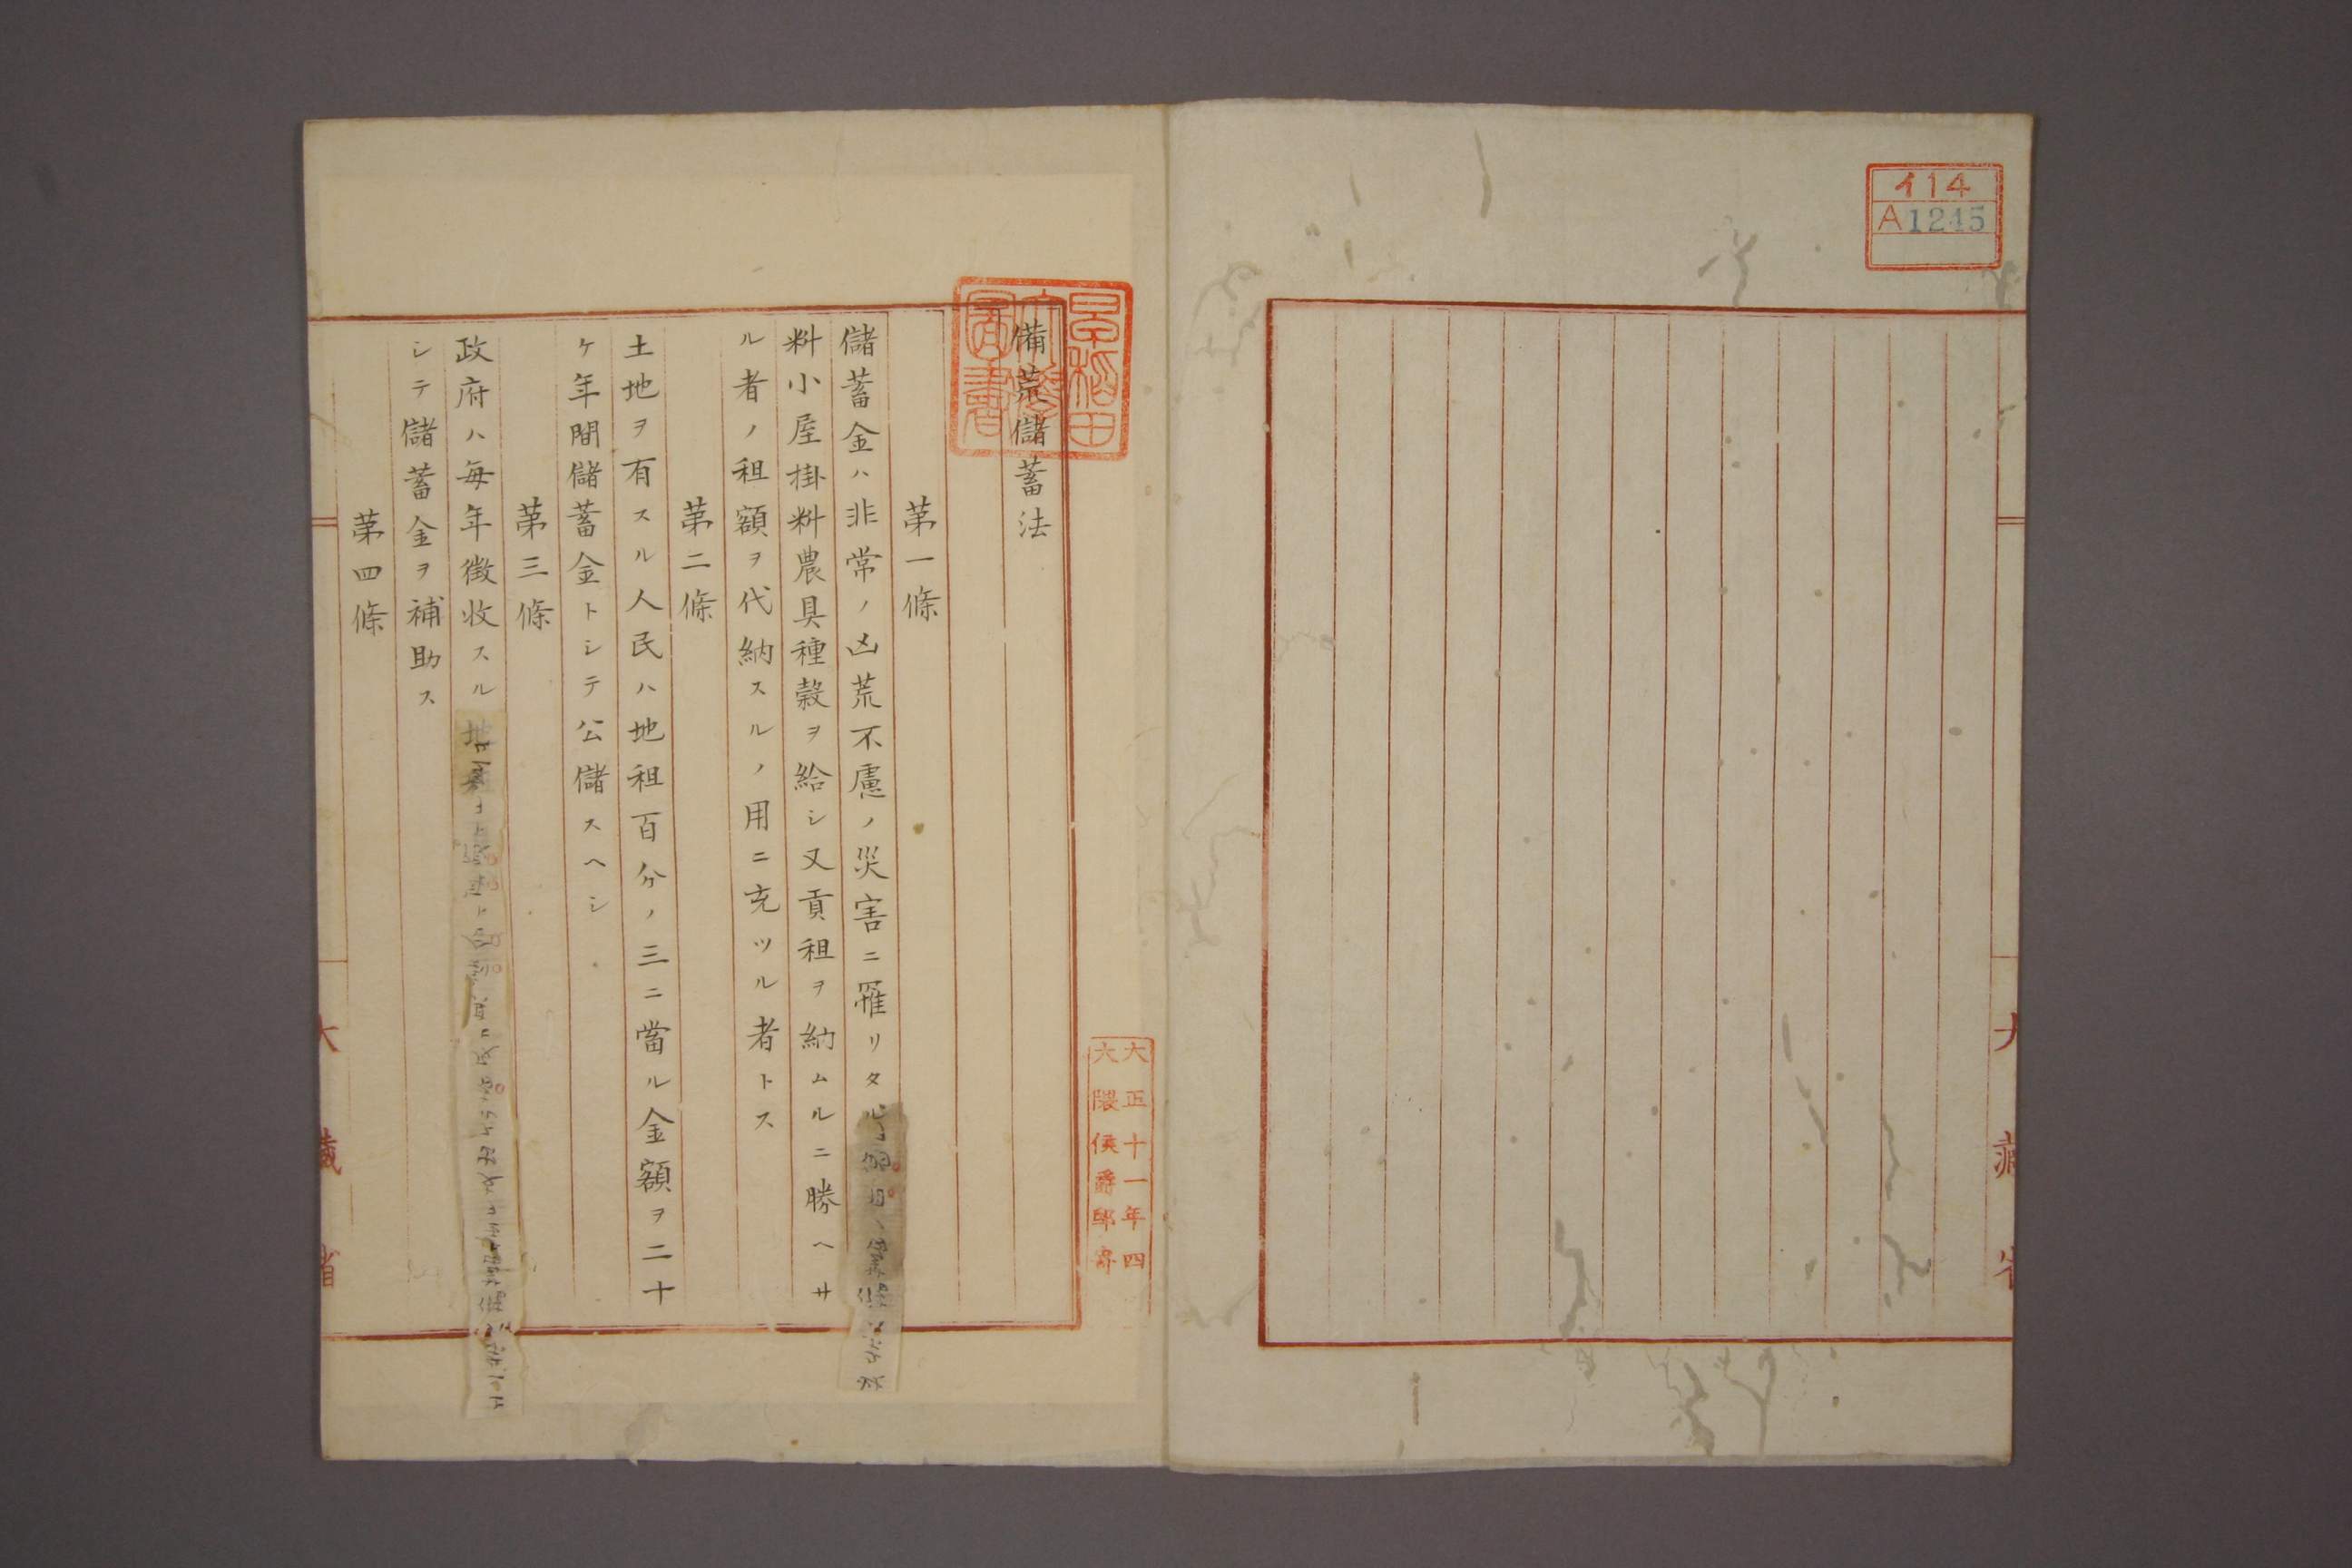 イ14
A1245
大藏省
早稲田大學圖書
大正十一年四
大隈侯爵邸寄
備荒儲蓄法
第一條
儲蓄金ハ非常ノ凶荒不慮ノ災害ニ罹リタル
料小屋掛料農具種穀ヲ給シ又貢租ヲ納ムルニ勝ヘサ
ル者ノ租額ヲ代納スルノ用ニ充ツル者トス
第二條
土地ヲ有スル人民ハ地租百分ノ三ニ當ル金額ヲ二十
ケ年間儲蓄金トシテ公儲スヘシ
第三條
政府ハ毎年徴收スル地
シテ儲蓄金ヲ補助ス
第四條
大藏省